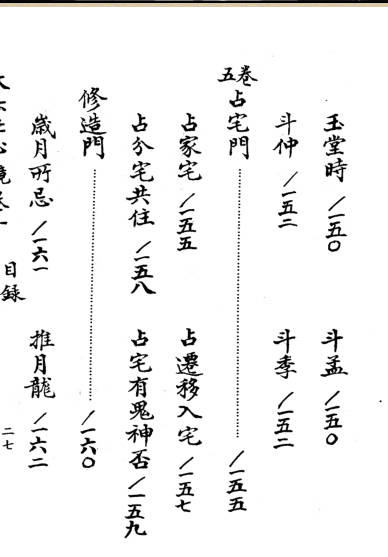 玉堂時/一五〇 斗孟/一五〇
斗仲/一五二 斗季/一五二
卷五
占宅門……/一五五
占家宅/一五五 占遷移入宅/一五七
占分宅共住/一五八 占宅有鬼神否/一五九
修造門……/一六〇
歲月所忌/一六一 推月龍/一六二
目錄
二七